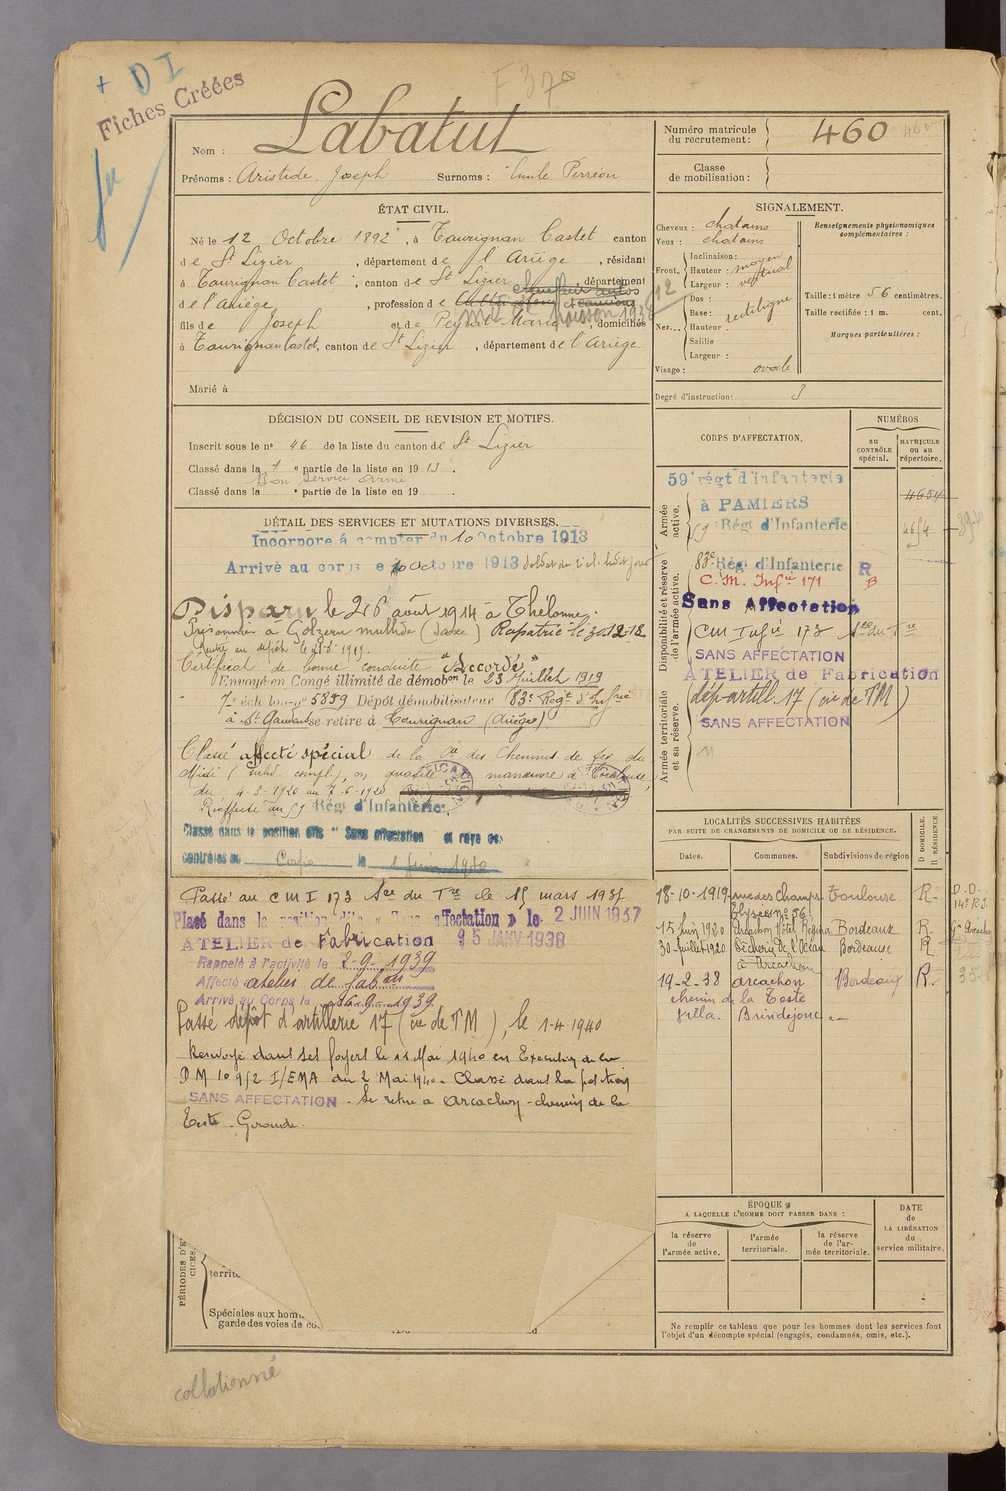 + DI
Fiches Créées
F 37
Nom : Labatut
Prénoms : Aristide Joseph Surnoms : Emile Perréon
ÉTAT CIVIL.
Né le 12 Octobre 1892, à Taurignan Castet canton
de St Lizier, département de l'Ariège, résidant
à Taurignan Castet, canton de St Lizier, département
chauffeur autos
de l'Ariège, profession de Cultivateur et camions
fils de Joseph et de Peyrat Marie, domiciliés
à Taurignan Castet, canton de St Lizier, département de l'Ariège
Marié à
DÉCISION DU CONSEIL DE REVISION ET MOTIFS.
Inscrit sous le n° 46 de la liste du canton de St Lizier
Classé dans la 1 e partie de la liste en 1913.
Bon service armé
Classé dans la e partie de la liste en 19 .
DÉTAIL DES SERVICES ET MUTATIONS DIVERSES.
Incorporé à compter du 10 Octobre 1913
Arrivé au corps le 10 Octobre 1913 soldat de 2e cl. ledit jour
Disparu le 26 août 1914 à Thélonne.
Prisonnier à Golzern (Saxe) Rapatrié le 30-12-18
Certificat de bonne conduite "Accordé"
Envoyé en Congé illimité de démobon le 23 Juillet 1919
7e échelon n° 5859 Dépôt démobilisateur 83e Regt d'Infrie
à St Gaudens se retire à Taurignan (Ariège)
Classé affecté spécial de la Cie des Chemins de fer du
Midi (subd. compl.), en qualité de manœuvre à Toulouse
du 4-3-1920 au 7-6-1920
Réaffecté au 59 Régt d'Infanterie
Classé dans la position dite "Sans affectation" et rayé des
contrôles du Corps le
Passé au CMI 173 Sce du Tre le 15 mars 1937
Placé dans la position dite « Sans affectation » le 2 JUIN 1937
ATELIER de Fabrication 25 JANV 1938
Rappelé à l'activité le 2-9-1939
Affecté atelier de fabon
Arrivé au Corps le 16-9-1939
Passé dépôt d'artillerie 17 (cie de TM), le 1-4-1940
Renvoyé dans ses foyers le 11 Mai 1940 en Execution de la
DM 10952 I/EMA du 2 Mai 1940. Classé dans la position
SANS AFFECTATION. Se retire à Arcachon - chemin de la
Teste. Gironde.
PÉRIODES D'E
CICES.
territo
Spéciales aux hom
garde des voies de co
collationné
Numéro matricule
du recrutement : 460
460
Classe
de mobilisation :
SIGNALEMENT.
Cheveux : chatains
Yeux : chatains
Front. Inclinaison :
Hauteur : moyen
Largeur : vertical
Nez... Dos :
Base : rectiligne
Hauteur :
Saillie
Largeur :
Visage : ovale
Renseignements physionomiques
complémentaires :
Taille : 1 mètre 56 centimètres.
Taille rectifiée : 1 m. cent.
Marques particulières :
Degré d'instruction : 3
CORPS D'AFFECTATION.
NUMÉROS
au
CONTRÔLE
spécial.
MATRICULE
ou au
répertoire.
Armée
active.
59e régt d'infanterie
à PAMIERS
4654
59 Régt d'Infanterie
4654
Disponibilité et réserve
de l'armée active.
83e Régt d'Infanterie R
C. M. Infie 171 B
Sans Affectation
CM Infie 173 Sce du Tre
SANS AFFECTATION
ATELIER de Fabrication
Armée territoriale
et sa réserve.
dép. artill. 17 (cie de TM)
SANS AFFECTATION
LOCALITÉS SUCCESSIVES HABITÉES
PAR SUITE DE CHANGEMENTS DE DOMICILE OU DE RÉSIDENCE.
Dates. Communes. Subdivisions de région
D DOMICILE.
R RÉSIDENCE
18-10-1919 rue des Champs Toulouse R.
Elysées n° 56
15 juin 1920 Arcachon Bordeaux R.
30-Juillet 1920 Pêcherie de l'Océan Bordeaux R
à Arcachon
19-2-38 Arcachon Bordeaux R.
chemin de la Teste
Villa Brindejonc
ÉPOQUE
A LAQUELLE L'HOMME DOIT PASSER DANS :
la réserve
de
l'armée active.
l'armée
territoriale.
la réserve
de l'ar-
mée territoriale.
DATE
de
LA LIBÉRATION
du
service militaire.
Ne remplir ce tableau que pour les hommes dont les services font
l'objet d'un décompte spécial (engagés, condamnés, omis, etc.).